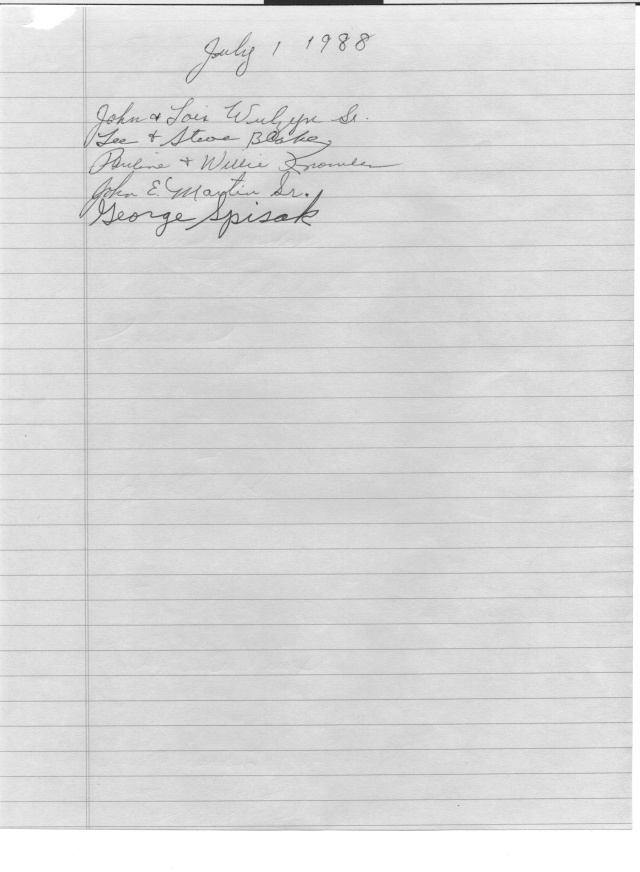 July 1 1988
John & Lois Sr.
Lee & Steve Blake
Pauline & Willie Knowles
John E. Martin Sr.
George Spisak